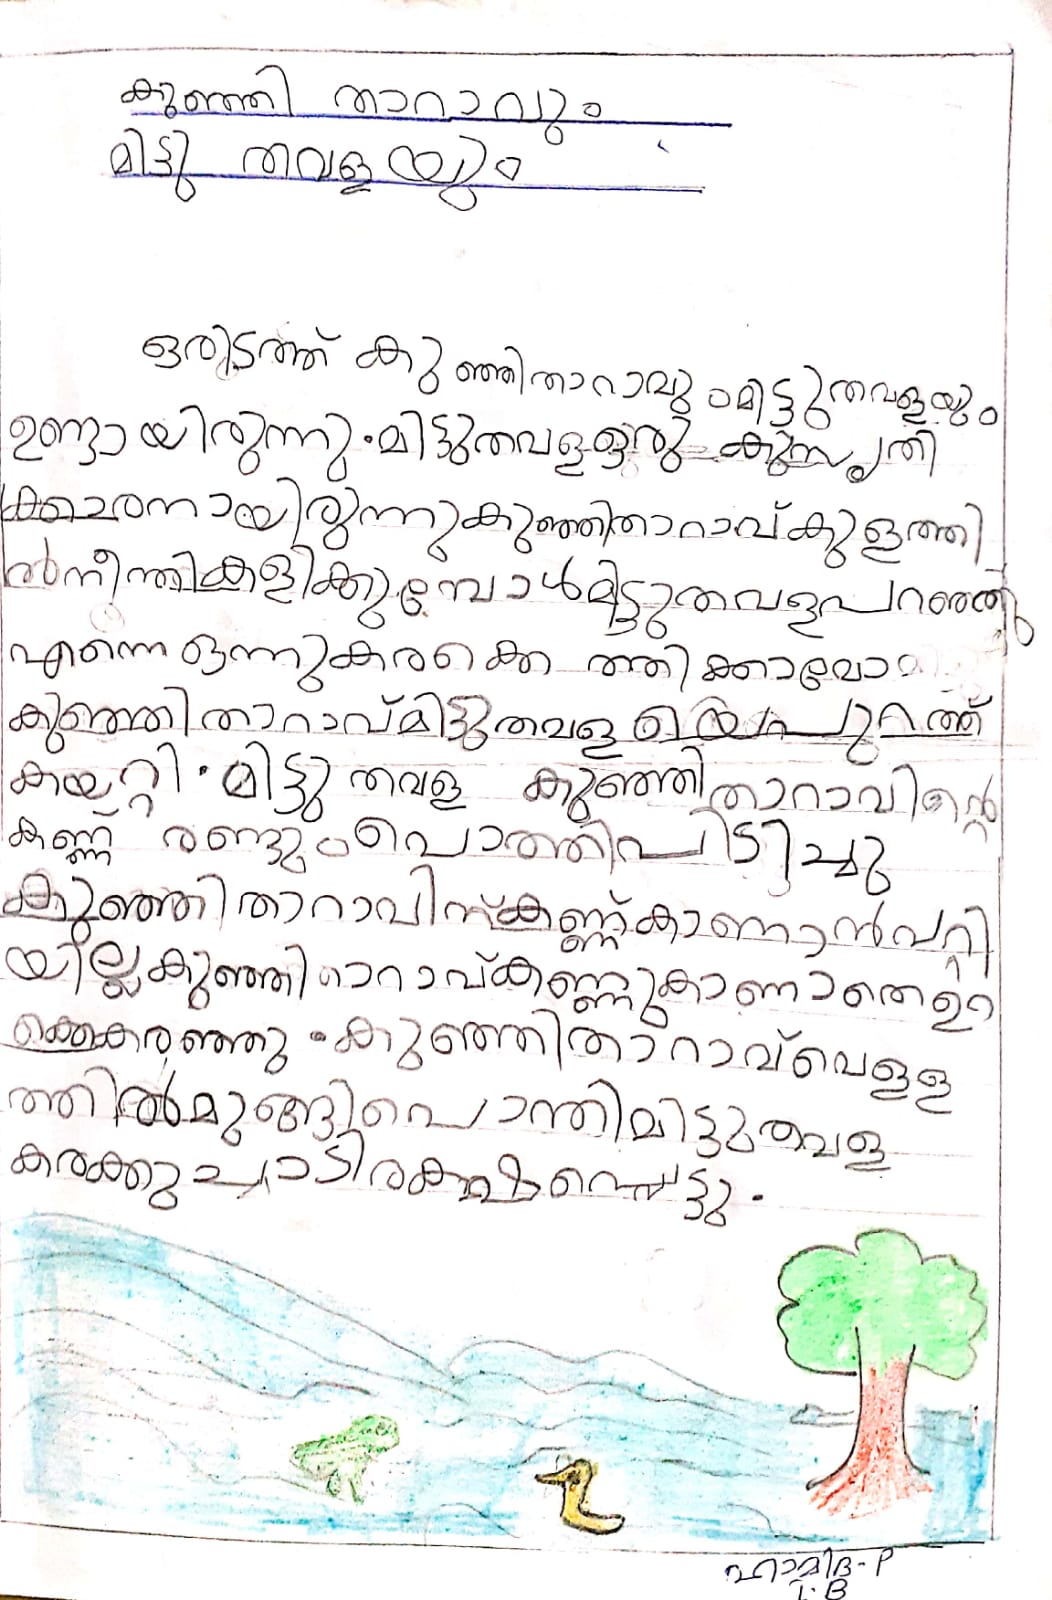 കുഞ്ഞി താറാവും
മിട്ടു തവളയും
ഒരിടത്ത് കുഞ്ഞിതാറാവു ംമിട്ടുതവളയും
ഉണ്ടായിരുന്നു.മിട്ടുതവളഒരു കുസൃതി
ക്കാരനായിരുന്നുകുഞ്ഞിതാറാവ്കുളത്തി
ൽനീന്തികളിക്കുമ്പോൾമിട്ടുതവളപറഞ്ഞു
എന്നെ ഒന്നുകരക്കെ ത്തി ക്കാവോ
കുഞ്ഞിതാറാവ്മിട്ടുതവള യെപുറത്ത്
കയറ്റി.മിട്ടു തവള കുഞ്ഞിതാറാവിന്റെ
കണ്ണ് രണ്ടും പൊത്തിപിടിച്ചു
കുഞ്ഞിതാറാവിന്കണ്ണ്കാണാൻപറ്റി
യില്ലകുഞ്ഞിതാറാവ്കണ്ണുകാണാതെഉറ
ക്കെകരഞ്ഞു.കുഞ്ഞിതാറാവ്വെളള
ത്തിൽമുങ്ങിപൊന്തിമിട്ടുതവള
കരക്കുചാടിരക്ഷപ്പെട്ടു.
ഹാമിദ-P
I-B